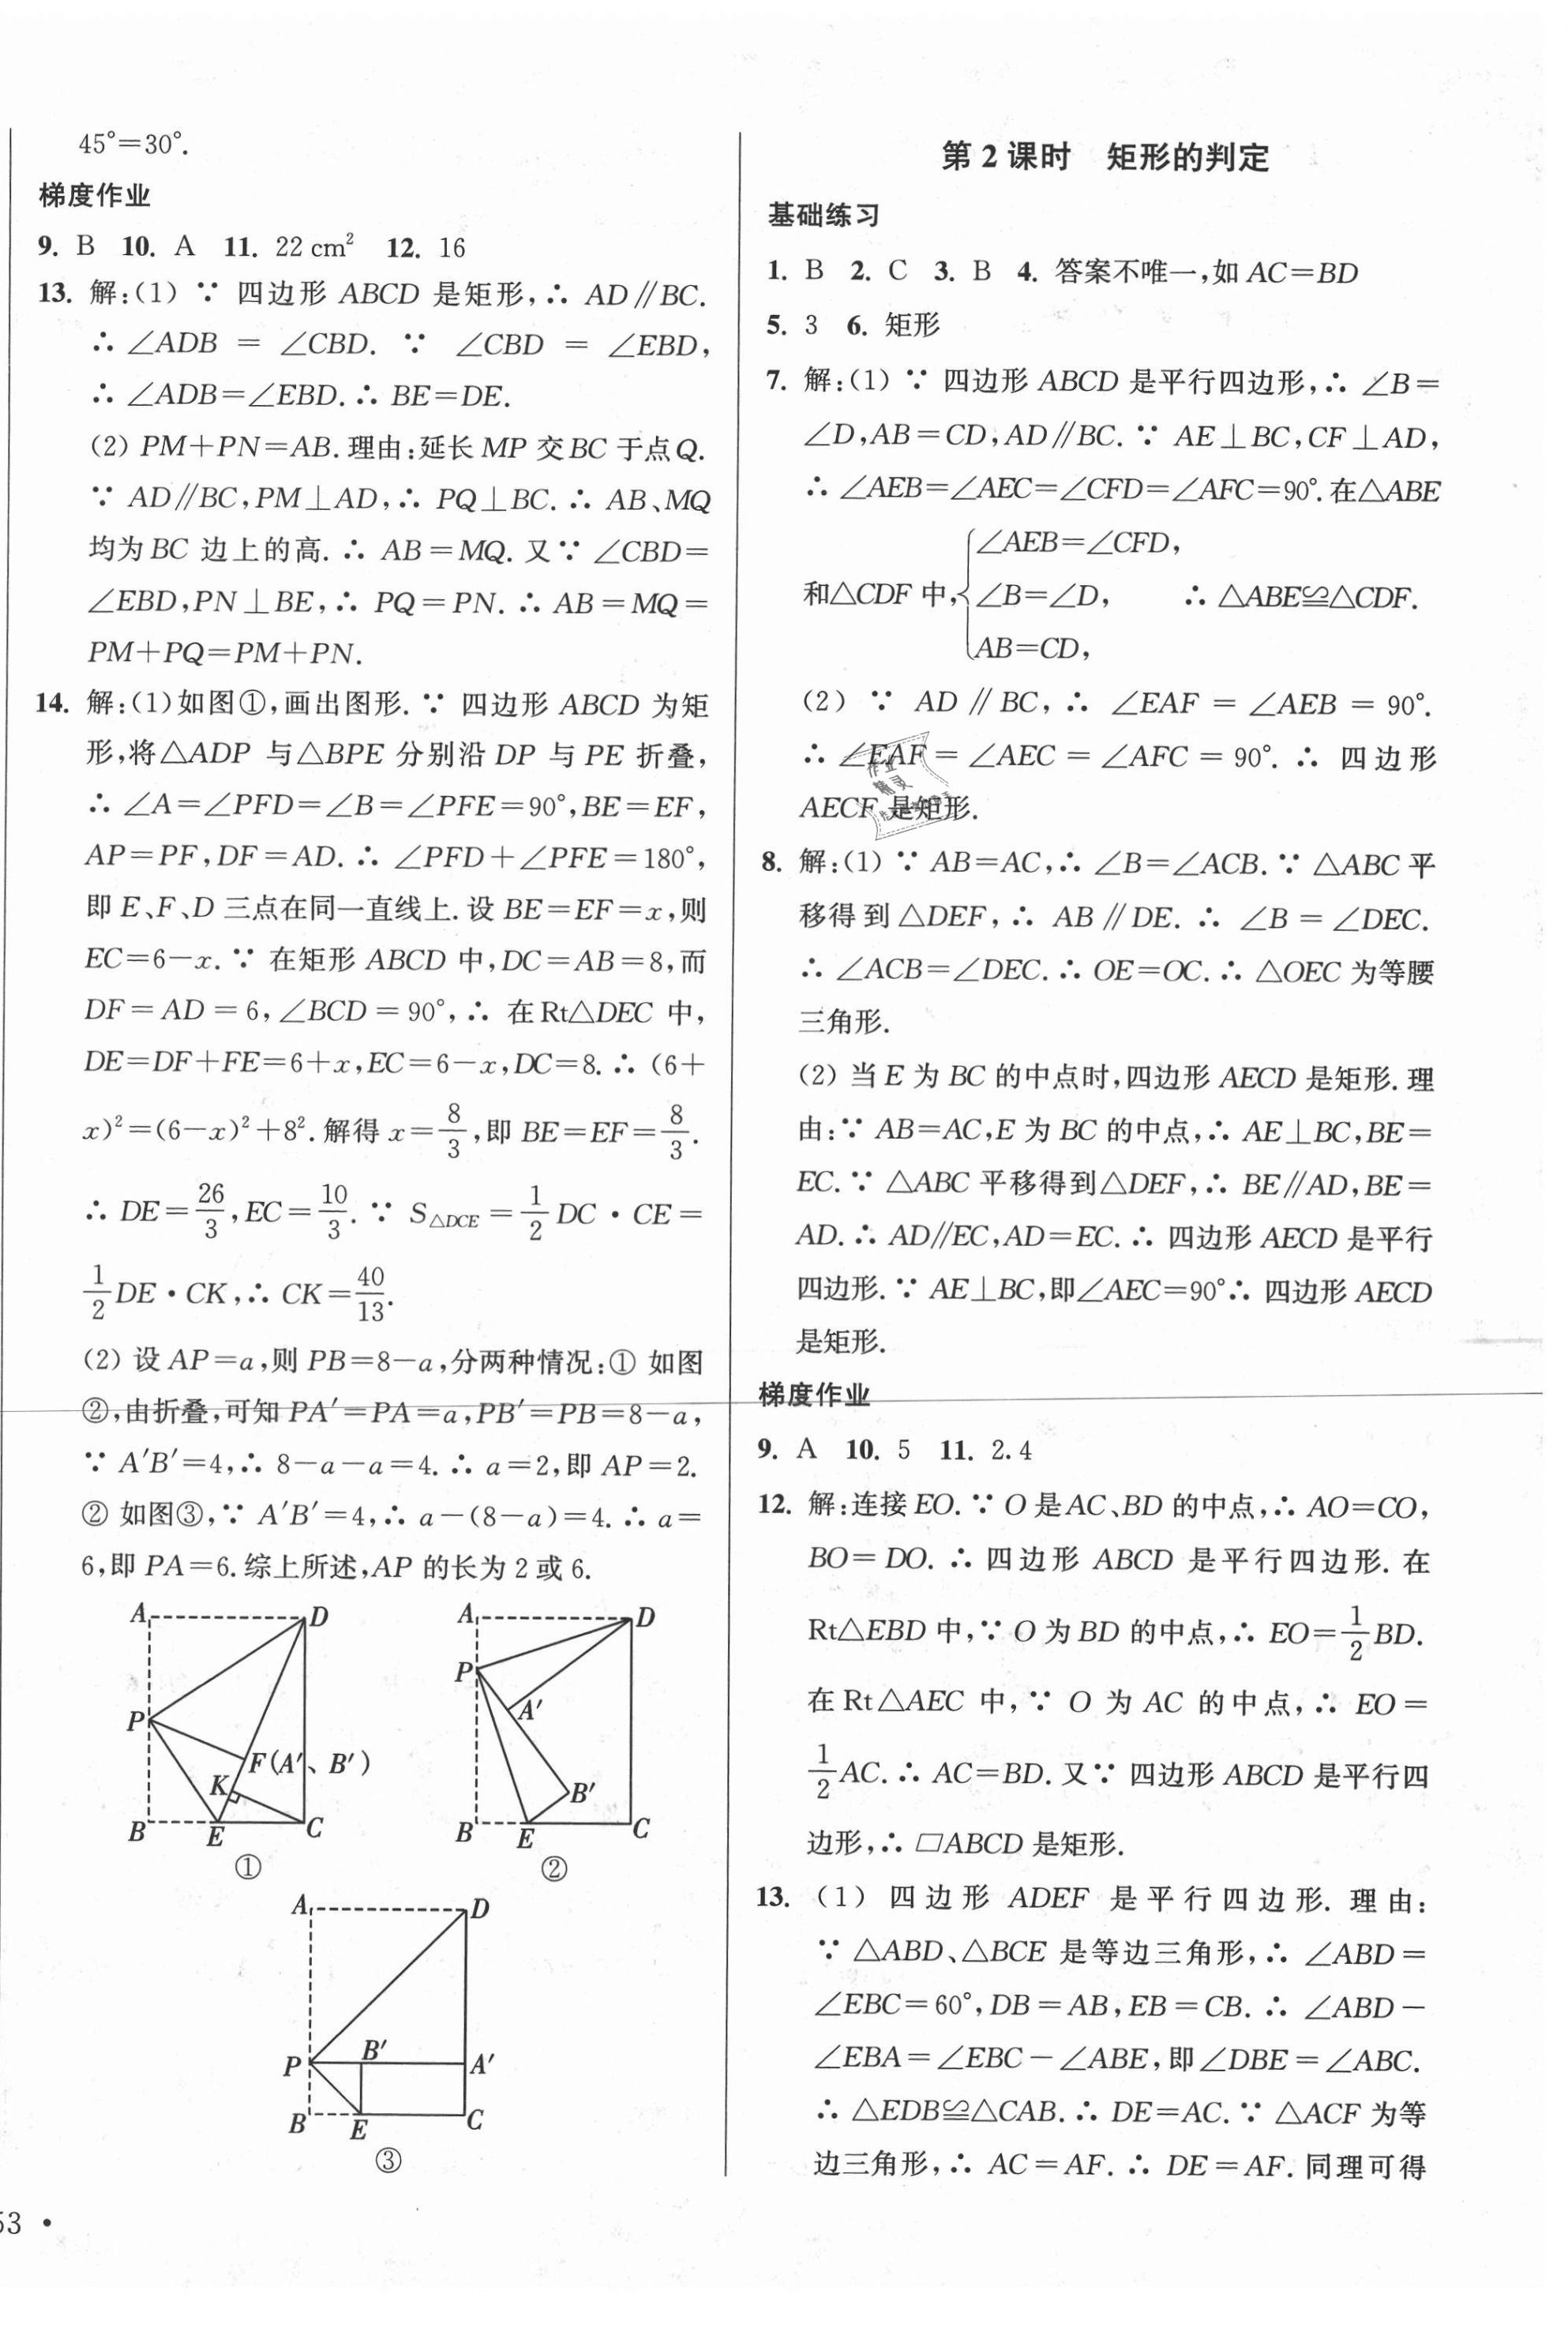 45°=30°.
梯度作业
9. B 10. A 11. 22 cm² 12. 16
13. 解:(1) ∵ 四边形 ABCD 是矩形,∴ AD∥BC.
∴ ∠ADB = ∠CBD. ∵ ∠CBD = ∠EBD,
∴ ∠ADB=∠EBD. ∴ BE=DE.
(2) PM+PN=AB. 理由:延长 MP 交 BC 于点 Q.
∵ AD∥BC,PM⊥AD,∴ PQ⊥BC. ∴ AB、MQ
均为 BC 边上的高. ∴ AB=MQ. 又∵ ∠CBD=
∠EBD,PN⊥BE,∴ PQ=PN. ∴ AB=MQ=
PM+PQ=PM+PN.
14. 解:(1)如图①,画出图形. ∵ 四边形 ABCD 为矩
形,将△ADP 与△BPE 分别沿 DP 与 PE 折叠,
∴ ∠A=∠PFD=∠B=∠PFE=90°,BE=EF,
AP=PF,DF=AD. ∴ ∠PFD+∠PFE=180°,
即 E、F、D 三点在同一直线上. 设 BE=EF=x,则
EC=6-x. ∵ 在矩形 ABCD 中,DC=AB=8,而
DF=AD=6,∠BCD=90°,∴ 在 Rt△DEC 中,
DE=DF+FE=6+x,EC=6-x,DC=8. ∴ (6+
x)²=(6-x)²+8². 解得 x=8/3,即 BE=EF=8/3.
∴ DE=26/3,EC=10/3. ∵ S△DCE=1/2 DC·CE=
1/2 DE·CK,∴ CK=40/13.
(2) 设 AP=a,则 PB=8-a,分两种情况:① 如图
②,由折叠,可知 PA′=PA=a,PB′=PB=8-a,
∵ A′B′=4,∴ 8-a-a=4. ∴ a=2,即 AP=2.
② 如图③,∵ A′B′=4,∴ a-(8-a)=4. ∴ a=
6,即 PA=6. 综上所述,AP 的长为 2 或 6.
A D
P
F(A′、B′)
K
B E C
①
A D
P
A′
B′
B E C
②
A D
P B′ A′
B E C
③
53 ·
第 2 课时 矩形的判定
基础练习
1. B 2. C 3. B 4. 答案不唯一,如 AC=BD
5. 3 6. 矩形
7. 解:(1) ∵ 四边形 ABCD 是平行四边形,∴ ∠B=
∠D,AB=CD,AD∥BC. ∵ AE⊥BC,CF⊥AD,
∴ ∠AEB=∠AEC=∠CFD=∠AFC=90°. 在△ABE
∠AEB=∠CFD,
和△CDF 中,{∠B=∠D, ∴ △ABE≌△CDF.
AB=CD,
(2) ∵ AD∥BC,∴ ∠EAF=∠AEB=90°.
∴ ∠EAF=∠AEC=∠AFC=90°. ∴ 四边形
AECF 是矩形.
8. 解:(1) ∵ AB=AC,∴ ∠B=∠ACB. ∵ △ABC 平
移得到△DEF,∴ AB∥DE. ∴ ∠B=∠DEC.
∴ ∠ACB=∠DEC. ∴ OE=OC. ∴ △OEC 为等腰
三角形.
(2) 当 E 为 BC 的中点时,四边形 AECD 是矩形. 理
由:∵ AB=AC,E 为 BC 的中点,∴ AE⊥BC,BE=
EC. ∵ △ABC 平移得到△DEF,∴ BE∥AD,BE=
AD. ∴ AD∥EC,AD=EC. ∴ 四边形 AECD 是平行
四边形. ∵ AE⊥BC,即∠AEC=90°∴ 四边形 AECD
是矩形.
梯度作业
9. A 10. 5 11. 2.4
12. 解:连接 EO. ∵ O 是 AC、BD 的中点,∴ AO=CO,
BO=DO. ∴ 四边形 ABCD 是平行四边形. 在
Rt△EBD 中,∵ O 为 BD 的中点,∴ EO=1/2 BD.
在 Rt△AEC 中,∵ O 为 AC 的中点,∴ EO=
1/2 AC. ∴ AC=BD. 又∵ 四边形 ABCD 是平行四
边形,∴ □ABCD 是矩形.
13. (1) 四边形 ADEF 是平行四边形. 理由:
∵ △ABD、△BCE 是等边三角形,∴ ∠ABD=
∠EBC=60°,DB=AB,EB=CB. ∴ ∠ABD-
∠EBA=∠EBC-∠ABE,即∠DBE=∠ABC.
∴ △EDB≌△CAB. ∴ DE=AC. ∵ △ACF 为等
边三角形,∴ AC=AF. ∴ DE=AF. 同理可得